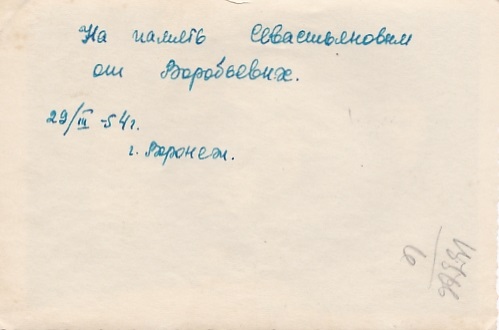 На память Севастьяновым
от Воробьевых.
29/III-54г.
г. Воронеж.